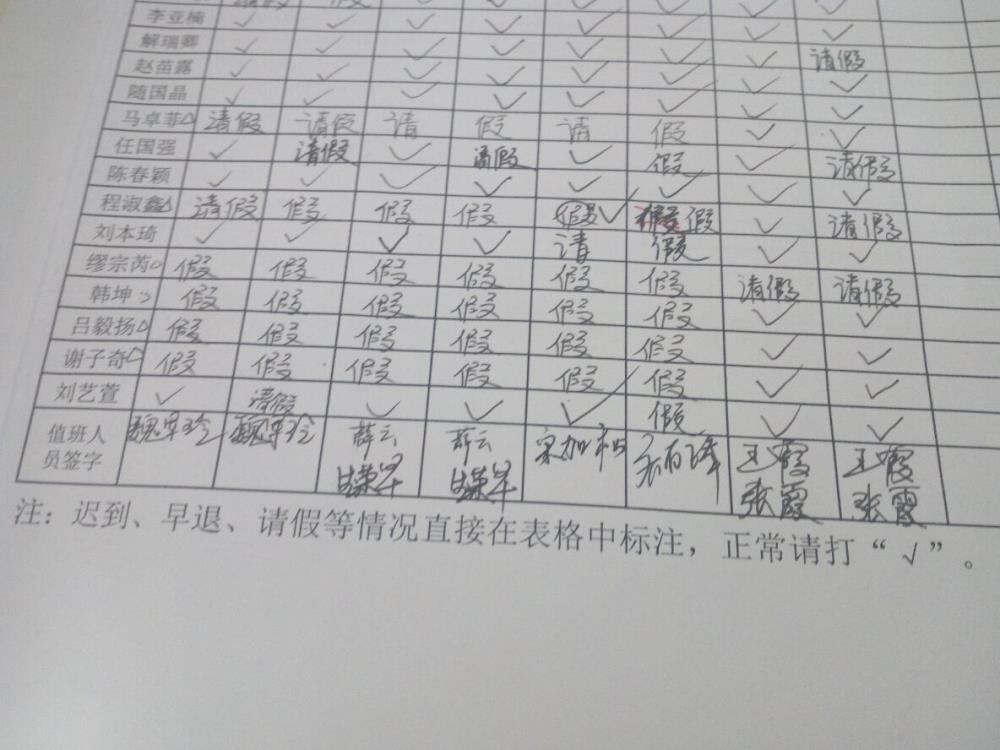 李亚楠 ✓ ✓ ✓ ✓ ✓ ✓ ✓ ✓
解瑞卿 ✓ ✓ ✓ ✓ ✓ ✓ ✓ 请假
赵苗露 ✓ ✓ ✓ ✓ ✓ ✓ ✓ ✓
随国晶 ✓ ✓ ✓ ✓ ✓ ✓ ✓ ✓
马卓菲△ 请假 请假 请 假 请 假 ✓ ✓
任国强 ✓ 请假 ✓ 请假 ✓ 假 ✓ 请假
陈春颖 ✓ ✓ ✓ ✓ ✓ ✓ ✓ ✓
程淑鑫△ 请假 假 假 假 假✓ 假 ✓ 请假
刘本琦 ✓ ✓ ✓ ✓ 请 假 ✓ ✓
缪宗芮△ 假 假 假 假 假 假 请假 请假
韩坤 假 假 假 假 假 假 ✓ ✓
吕毅扬△ 假 假 假 假 假 假 ✓ ✓
谢子奇△ 假 假 假 假 假 假 ✓ ✓
刘艺萱 ✓ 请假 ✓ ✓ ✓ 假 ✓ ✓
值班人 薛云 薛云 王霞 王霞
员签字 张霞 张霞
注：迟到、早退、请假等情况直接在表格中标注，正常请打“√”。